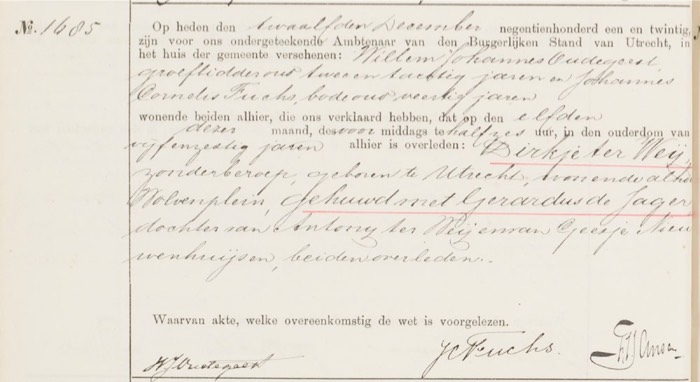 No. 1685
Op heden den twaalfden December negentienhonderd een en twintig,
zijn voor ons ondergeteekende Ambtenaar van den Burgerlijken Stand van Utrecht, in
het huis der gemeente verschenen: Willem Johannes Oudegeest
groefbidder oud twee en tachtig jaren en Johannes
Cornelis Fuchs, bode oud veertig jaren
wonende beiden alhier, die ons verklaard hebben, dat op den elfden
dezer maand, des voor middags te half zes uur, in den ouderdom van
vijfenzestig jaren alhier is overleden: Dirkje ter Weij,
zonder beroep, geboren te Utrecht, wonende alhier
Wolvenplein, gehuwd met Gerardus de Jager
dochter van Antony ter Weij en van Geesje Nieu
wenhuijsen, beiden overleden.
Waarvan akte, welke overeenkomstig de wet is voorgelezen.
WJOudegeest JCFuchs.